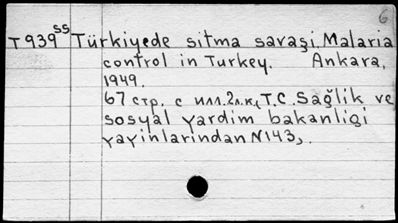 6
T939ss Türkiyede sitma savaşi, Malaria
control in Turkey. Ankara,
1949.
67 стр. с илл. 2л.к. (T.C. Sağlik ve
sosyal yardim bakanligi
yayinlarindan N143).